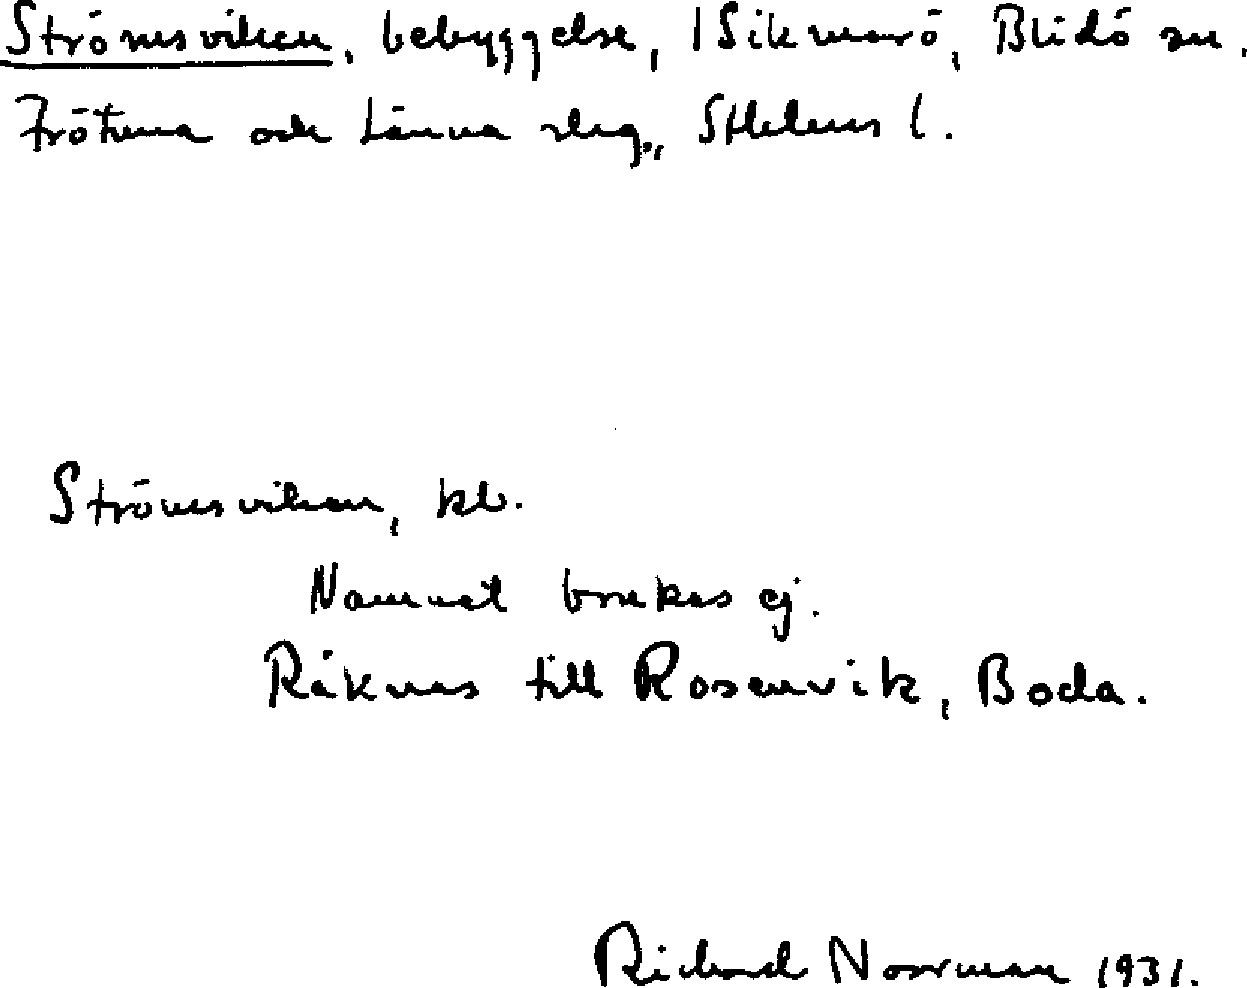 Strömsviken, bebyggelse, 1 Sikmarö, Blidö sn.
Frötuna och Länna skg., Sthlms l.
Strömsviken, kb.
Namnet brukas ej.
Räknas till Rosenvik, Boda.
Richard Norrman 1931.